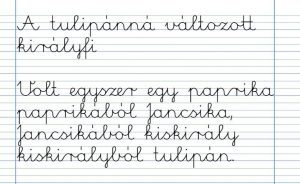 A tulipánná változott
királyfi
Volt egyszer egy paprika
paprikából Jancsika,
Jancsikából kiskirály
kiskirályból tulipán.